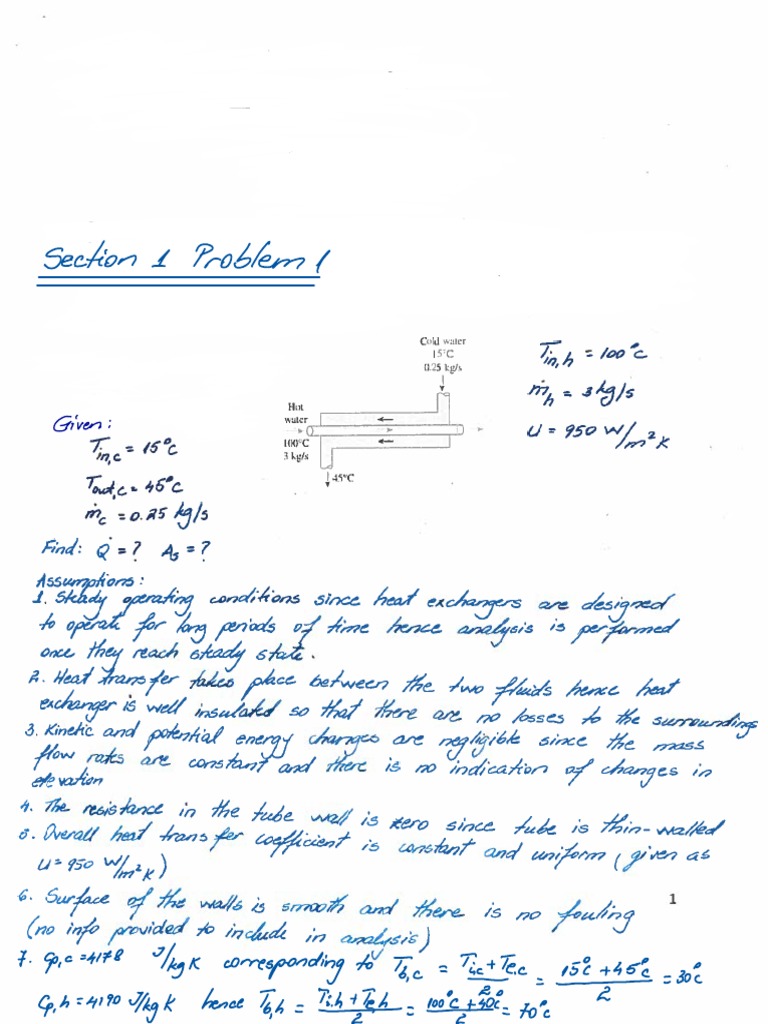 Section 1 Problem 1
Cold water
15°C
0.25 kg/s
Hot
water
100°C
3 kg/s
45°C
T_in,h = 100°C
ṁ_h = 3 kg/s
U = 950 W/m²K
Given:
T_in,c = 15°C
T_out,c = 45°C
ṁ_c = 0.25 kg/s
Find: Q̇ = ? A_s = ?
Assumptions:
1. Steady operating conditions since heat exchangers are designed
to operate for long periods of time hence analysis is performed
once they reach steady state.
2. Heat transfer takes place between the two fluids hence heat
exchanger is well insulated so that there are no losses to the surroundings
3. Kinetic and potential energy changes are negligible since the mass
flow rates are constant and there is no indication of changes in
elevation
4. The resistance in the tube wall is zero since tube is thin-walled
5. Overall heat transfer coefficient is constant and uniform (given as
U = 950 W/m²K)
6. Surface of the walls is smooth and there is no fouling
(no info provided to include in analysis)
1
7. Cp,c = 4178 J/kgK corresponding to T_b,c = (T_i,c + T_e,c)/2 = (15°C + 45°C)/2 = 30°C
Cp,h = 4190 J/kgK hence T_b,h = (T_i,h + T_e,h)/2 = (100°C + 40°C)/2 = 70°C